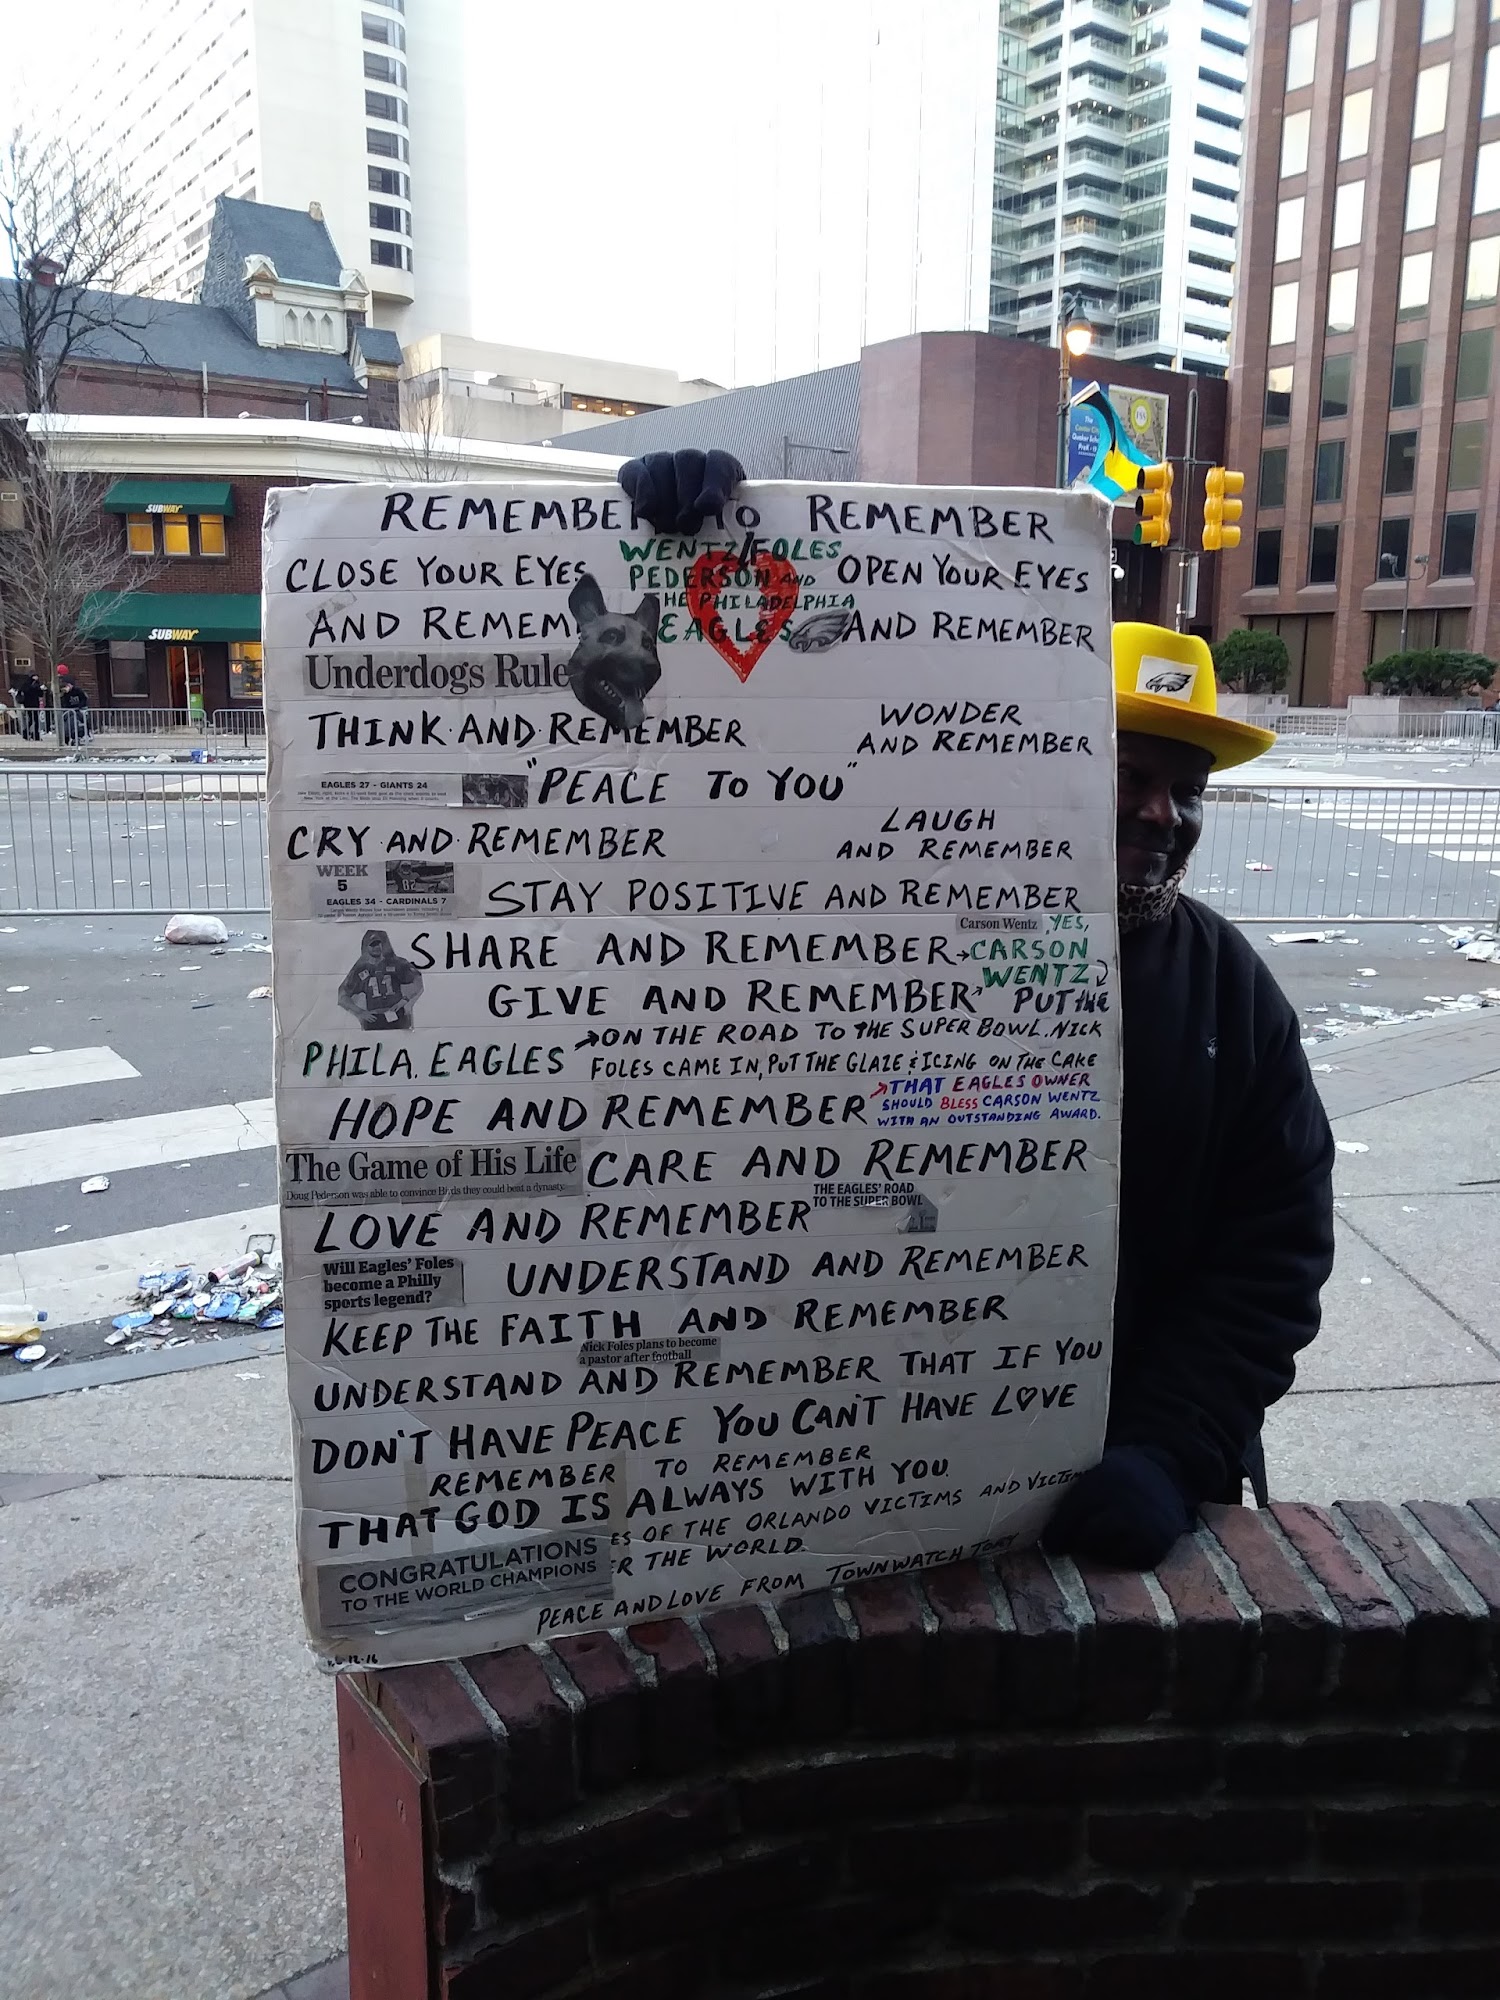 SUBWAY
SUBWAY
REMEMBER TO REMEMBER
CLOSE YOUR EYES
AND REMEM
WENTZ/FOLES
PEDERSON AND
THE PHILADELPHIA
EAGLES
OPEN YOUR EYES
AND REMEMBER
Underdogs Rule
THINK AND REMEMBER
WONDER
AND REMEMBER
EAGLES 27 - GIANTS 24
"PEACE TO YOU"
CRY AND REMEMBER
LAUGH
AND REMEMBER
WEEK
5
EAGLES 34 - CARDINALS 7
STAY POSITIVE AND REMEMBER
Carson Wentz YES,
SHARE AND REMEMBER→CARSON
WENTZ
GIVE AND REMEMBER PUT THE
11
PHILA. EAGLES
→ON THE ROAD TO THE SUPER BOWL. NICK
FOLES CAME IN, PUT THE GLAZE & ICING ON THE CAKE
HOPE AND REMEMBER
→THAT EAGLES OWNER
SHOULD BLESS CARSON WENTZ
WITH AN OUTSTANDING AWARD.
The Game of His Life
Doug Pederson was able to convince Birds they could beat a dynasty.
CARE AND REMEMBER
LOVE AND REMEMBER
THE EAGLES' ROAD
TO THE SUPER BOWL
Will Eagles' Foles
become a Philly
sports legend?
UNDERSTAND AND REMEMBER
KEEP THE FAITH AND REMEMBER
Nick Foles plans to become
a pastor after football
UNDERSTAND AND REMEMBER THAT IF YOU
DON'T HAVE PEACE YOU CAN'T HAVE L♡VE
REMEMBER TO REMEMBER
THAT GOD IS ALWAYS WITH YOU.
ES OF THE ORLANDO VICTIMS AND VICTIM
ER THE WORLD.
CONGRATULATIONS
TO THE WORLD CHAMPIONS
PEACE AND LOVE FROM TOWNWATCH TORY